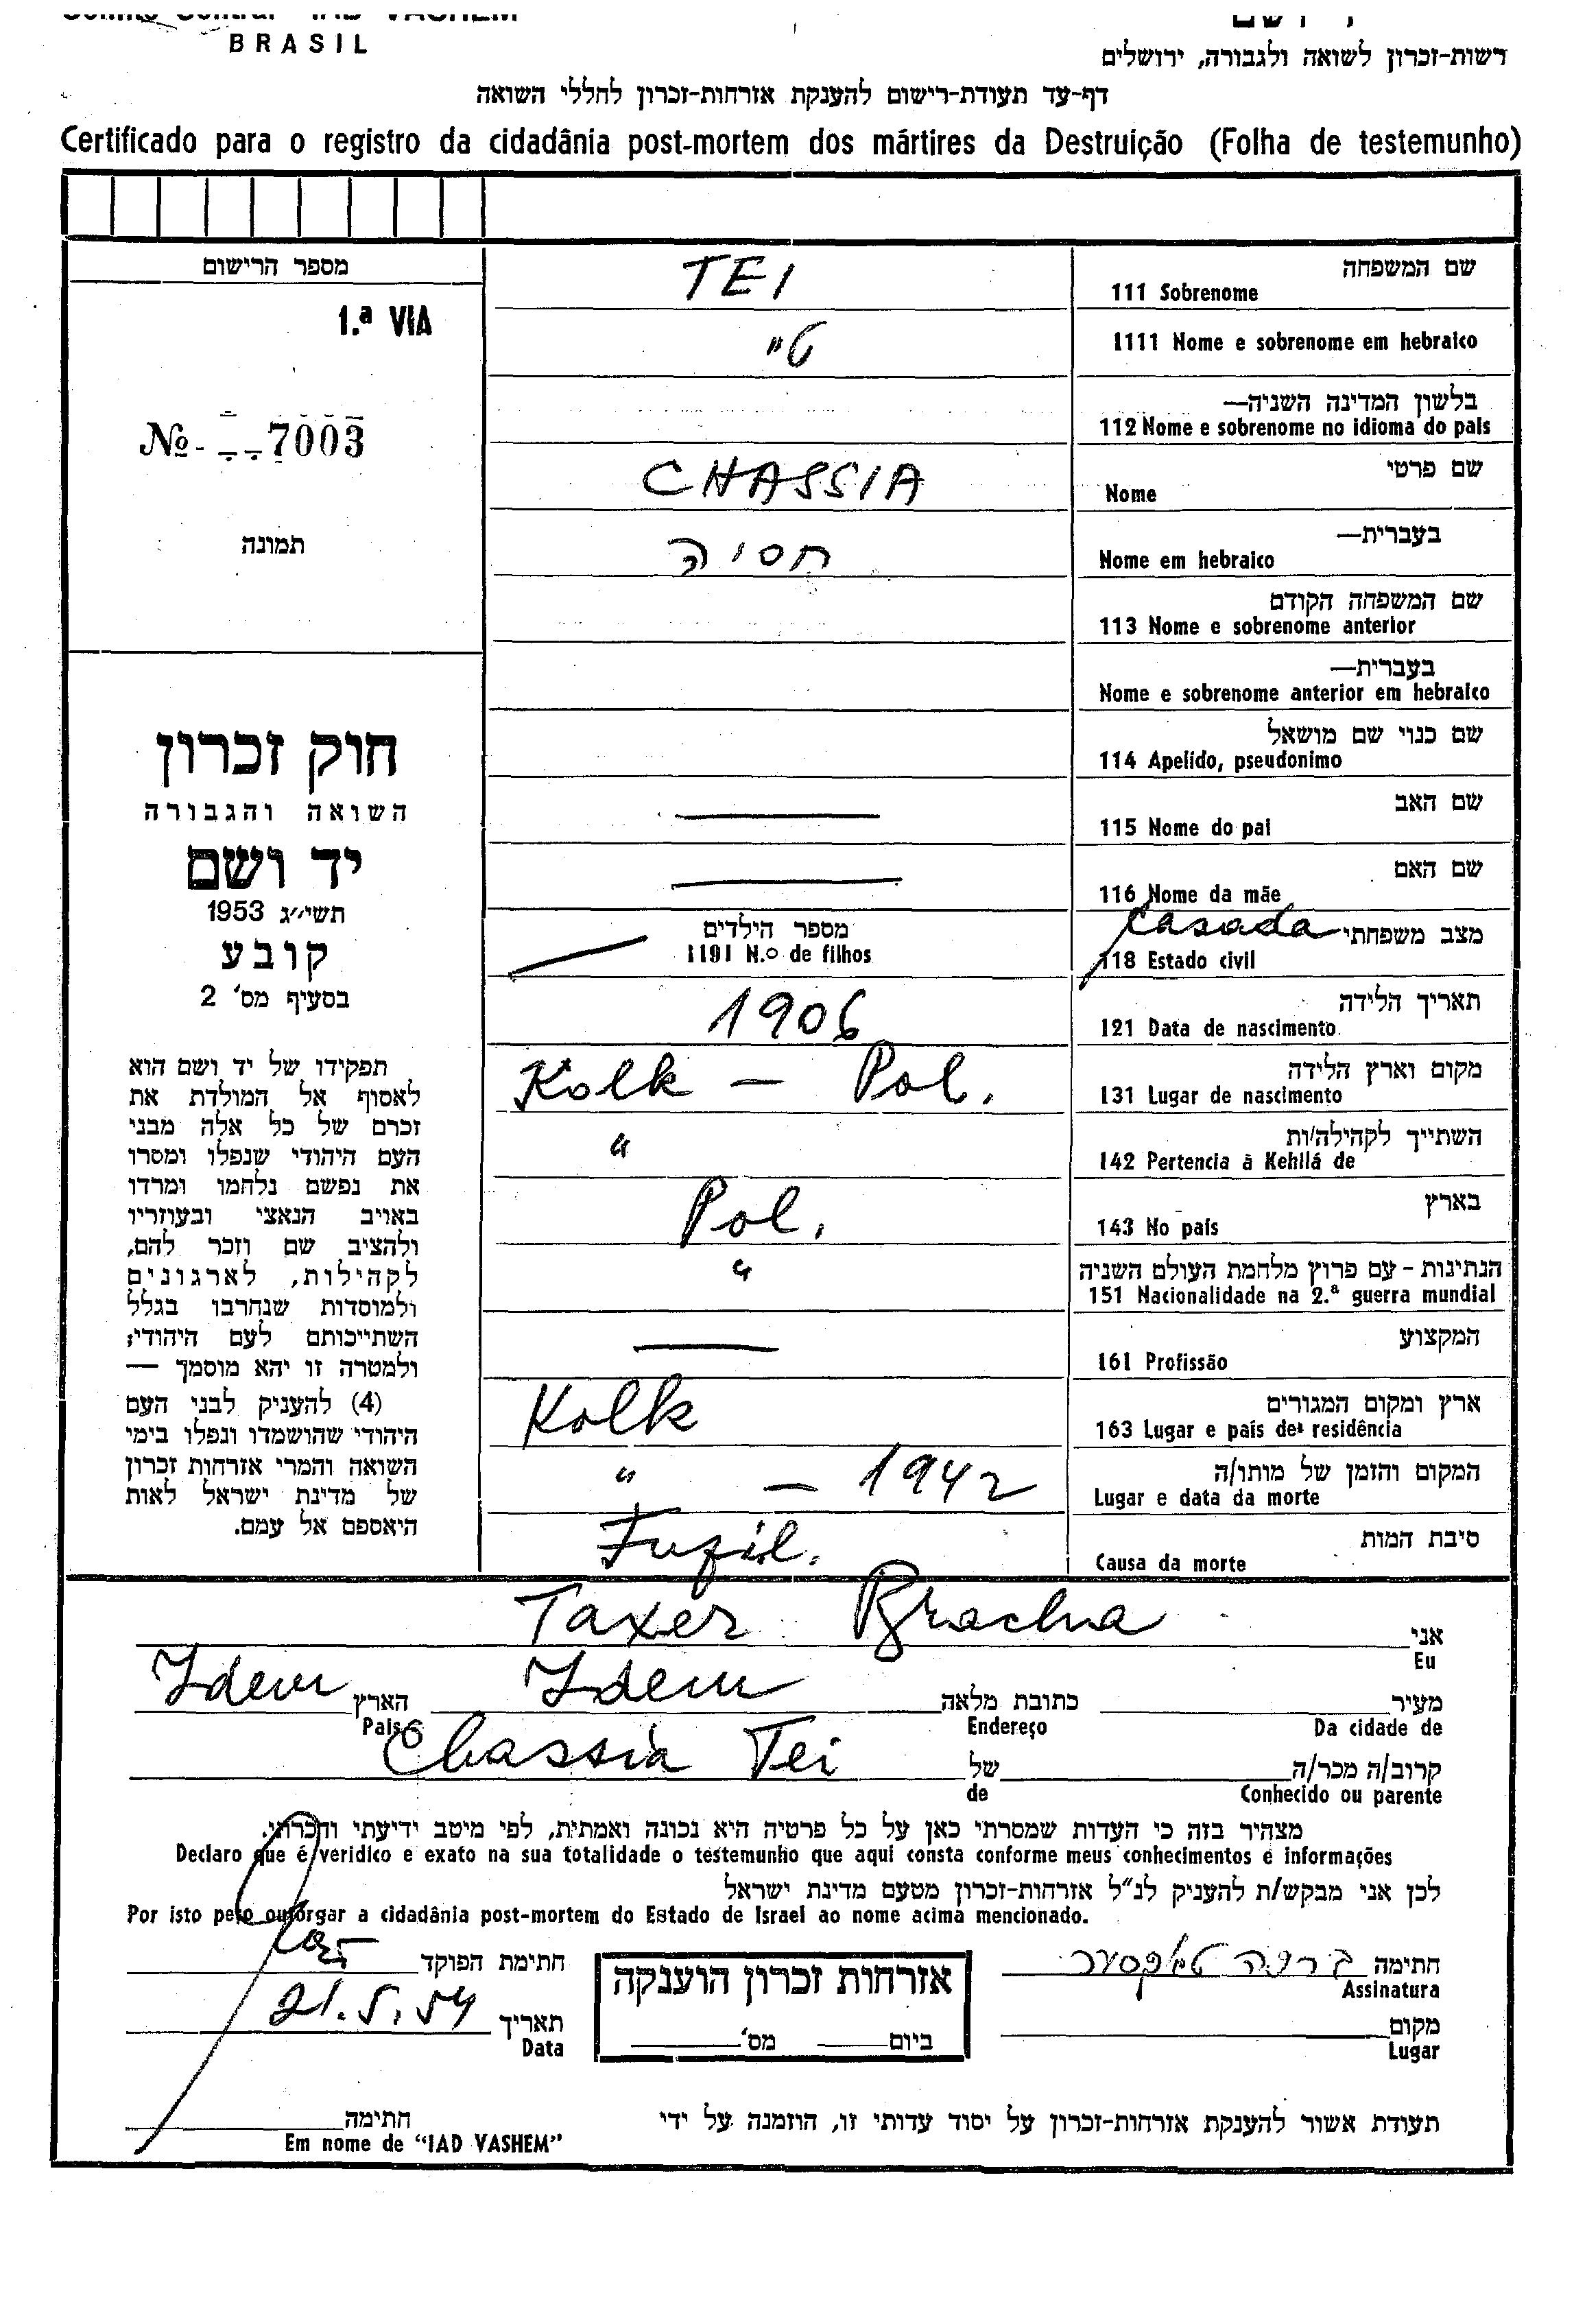 BRASIL
רשות-זכרון לשואה ולגבורה, ירושלים
דף-עד תעודת-רישום להענקת אזרחות-זכרון לחללי השואה
Certificado para o registro da cidadânia post-mortem dos mártires da Destruição (Folha de testemunho)
מספר הרישום
1.ª VIA
№ 7003
תמונה
חוק זכרון
השואה והגבורה
יד ושם
תשי״ג 1953
קובע
בסעיף מס' 2
תפקידו של יד ושם הוא
לאסוף אל המולדת את
זכרם של כל אלה מבני
העם היהודי שנפלו ומסרו
את נפשם נלחמו ומרדו
באויב הנאצי ובעוזריו
ולהציב שם וזכר להם,
לקהילות, לארגונים
ולמוסדות שנחרבו בגלל
השתייכותם לעם היהודי;
ולמטרה זו יהא מוסמך —
(4) להעניק לבני העם
היהודי שהושמדו ונפלו בימי
השואה והמרי אזרחות זכרון
של מדינת ישראל לאות
היאספם אל עמם.
שם המשפחה
111 Sobrenome
TEI
1111 Nome e sobrenome em hebraico
טיי
בלשון המדינה השניה—
112 Nome e sobrenome no idioma do pais
שם פרטי
Nome
CHASSIA
בעברית—
Nome em hebraico
חסיה
שם המשפחה הקודם
113 Nome e sobrenome anterior
בעברית—
Nome e sobrenome anterior em hebraico
שם כנוי שם מושאל
114 Apelido, pseudonimo
שם האב
115 Nome do pai
שם האם
116 Nome da mãe
מצב משפחתי
118 Estado civil
casada
מספר הילדים
1191 N.º de filhos
תאריך הלידה
121 Data de nascimento
1906
מקום וארץ הלידה
131 Lugar de nascimento
Kolk — Pol.
השתייך לקהילה/ות
142 Pertencia à Kehilá de
"
בארץ
143 No pais
Pol.
הנתינות - עם פרוץ מלחמת העולם השניה
151 Nacionalidade na 2.ª guerra mundial
"
המקצוע
161 Profissão
ארץ ומקום המגורים
163 Lugar e pais de residência
Kolk
המקום והזמן של מותו/ה
Lugar e data da morte
" — 1942
סיבת המות
Causa da morte
Fuzil.
אני
Eu
Taxer Bracha
מעיר
Da cidade de
כתובת מלאה
Endereço
Idem
הארץ
Pais
Idem
קרוב/ה מכר/ה
Conhecido ou parente
של
de
Chassia Tei
מצהיר בזה כי העדות שמסרתי כאן על כל פרטיה היא נכונה ואמתית, לפי מיטב ידיעתי והכרתי.
Declaro que é veridico e exato na sua totalidade o testemunho que aqui consta conforme meus conhecimentos e informações
לכן אני מבקש/ת להעניק לנ"ל אזרחות-זכרון מטעם מדינת ישראל
Por isto peço outorgar a cidadânia post-mortem do Estado de Israel ao nome acima mencionado.
חתימה
Assinatura
ברכה טאקסער
מקום
Lugar
אזרחות זכרון הוענקה
ביום מס'
חתימת הפוקד
תאריך
Data
21.5.54
תעודת אשור להענקת אזרחות-זכרון על יסוד עדותי זו, הוזמנה על ידי
חתימה
Em nome de "IAD VASHEM"